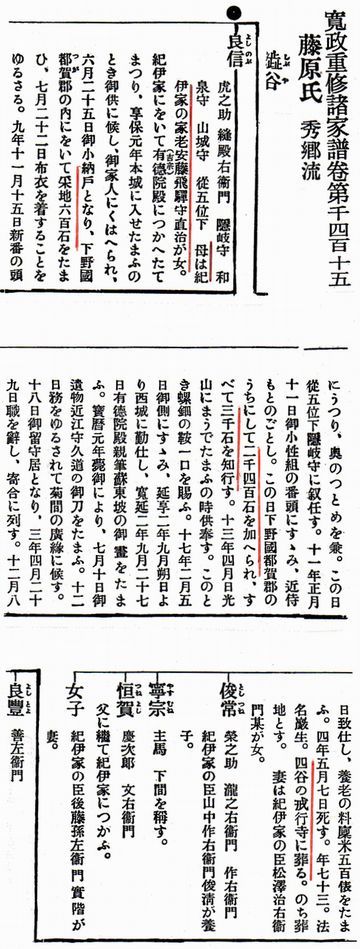 寛政重修諸家譜卷第千四百十五
藤原氏 秀郷流
澁谷
良信 よしのぶ
虎之助 縫殿右衞門 隱岐守 和
泉守 山城守 從五位下 母は紀
伊家の家老安藤飛驒守直治が女。
紀伊家にをいて有德院殿につかへたて
まつり、享保元年本城に入せたまふの
とき御供に候し、御家人にくはへられ、
六月二十五日御小納戸となり、下野國
都賀郡の内にをいて采地六百石をたま
ひ、七月二十二日布衣を着することを
ゆるさる。九年十一月十五日新番の頭
にうつり、奧のつとめを兼。この日
從五位下隱岐守に叙任す。十一年正月
十一日御小性組の番頭にすゝみ、近侍
もとのごとし。この日下野國都賀郡の
うちにして二千四百石を加へられ、す
べて三千石を知行す。十三年四月日光
山にまうでたまふの時供奉す。このと
き螺鈿の鞍一口を賜ふ。十七年二月五
日御側にすゝみ、延享二年九月朔日よ
り西城に勤仕し、寛延二年九月二十七
日有德院殿親筆蘇東坡の御畫をたま
ふ。寶曆元年薨御により、七月十日御
遺物近江守久道の御刀をたまふ。十二
日務をゆるされて菊間の廣緣に候す。
十八日御留守居となり、三年四月二十
九日職を辭し、寄合に列す。十二月八
日致仕し、養老の料廩米五百俵をたま
ふ。四年五月七日死す。年七十三。法
名巖生。四谷の戒行寺に葬る。のち葬
地とす。 妻は紀伊家の臣松澤治右衞
門某が女。
俊常 としつね
榮之助 瀧之右衞門 作右衞門
紀伊家の臣山中作右衞門俊淸が養
子。
寧宗 やすむね
主馬 下間を稱す。
恒賀 つねよし
慶次郎 文右衞門
父に繼て紀伊家につかふ。
女子
紀伊家の臣後藤孫左衞門實階が
妻。
良豐 よしとよ
善左衞門